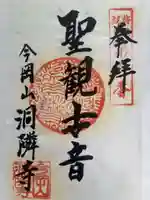 奉拝
聖観世音
今岡山洞隣寺